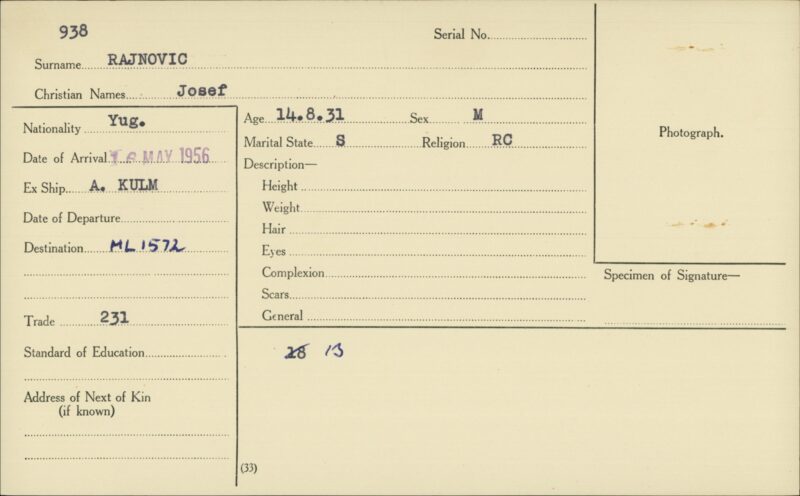 938
Serial No.
Surname RAJNOVIC
Christian Names Josef
Nationality Yug.
Date of Arrival MAY 1956
Ex Ship A. KULM
Date of Departure
Destination ML 1572
Trade 231
Standard of Education
Address of Next of Kin
(if known)
Age 14.8.31 Sex M
Marital State S Religion RC
Description—
Height
Weight
Hair
Eyes
Complexion
Scars
General
28 13
(33)
Photograph.
Specimen of Signature—